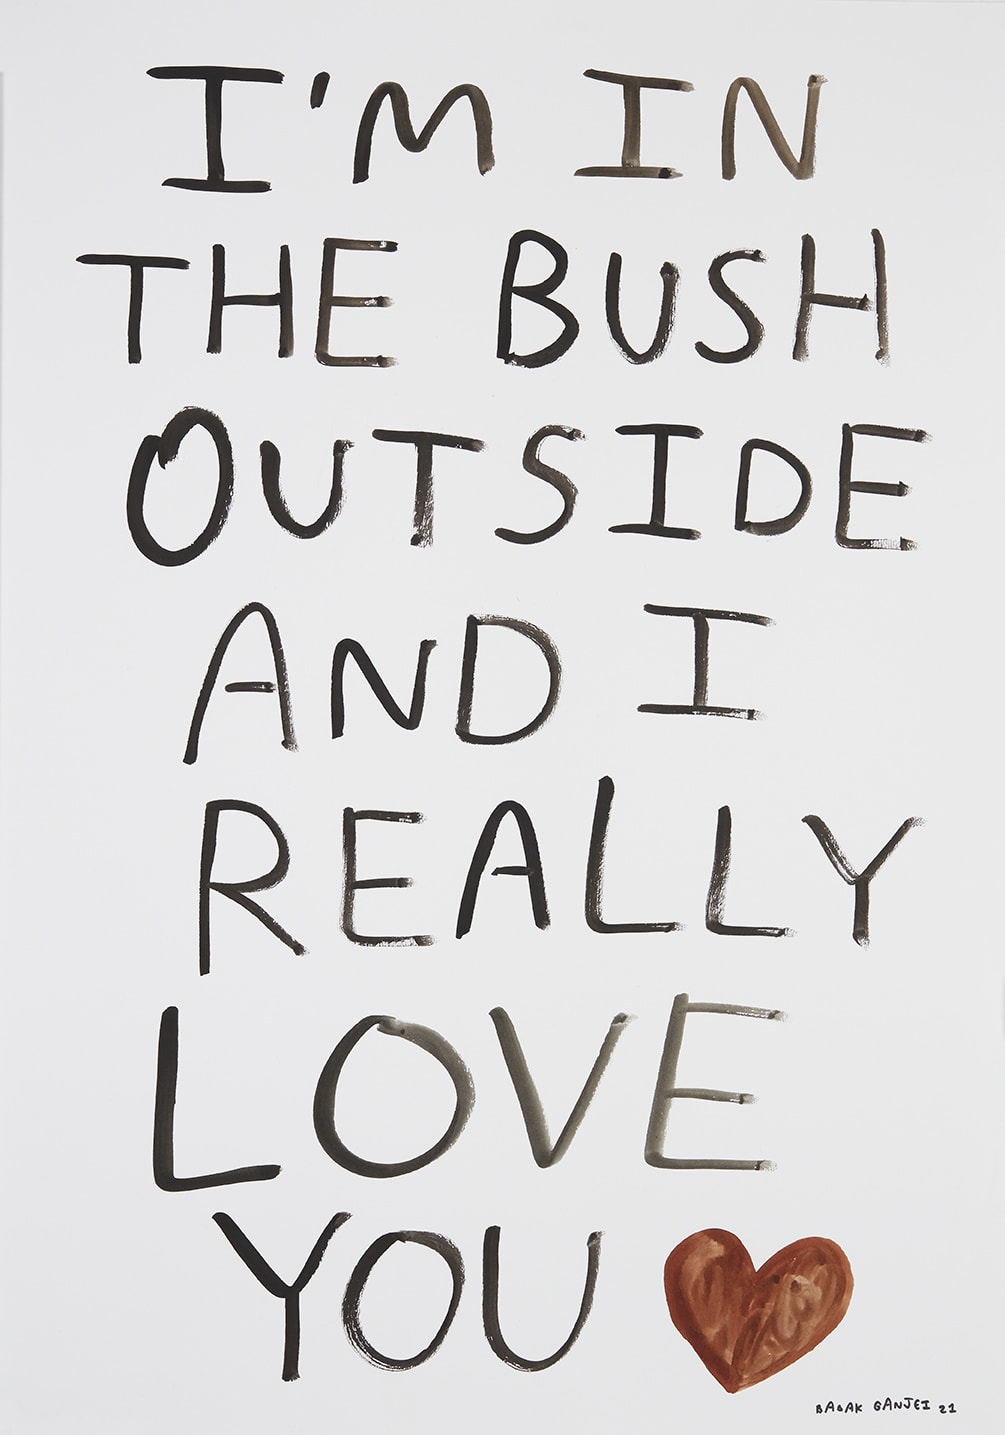 I'M IN
THE BUSH
OUTSIDE
AND I
REALLY
LOVE
YOU
BABAK GANJEI 21